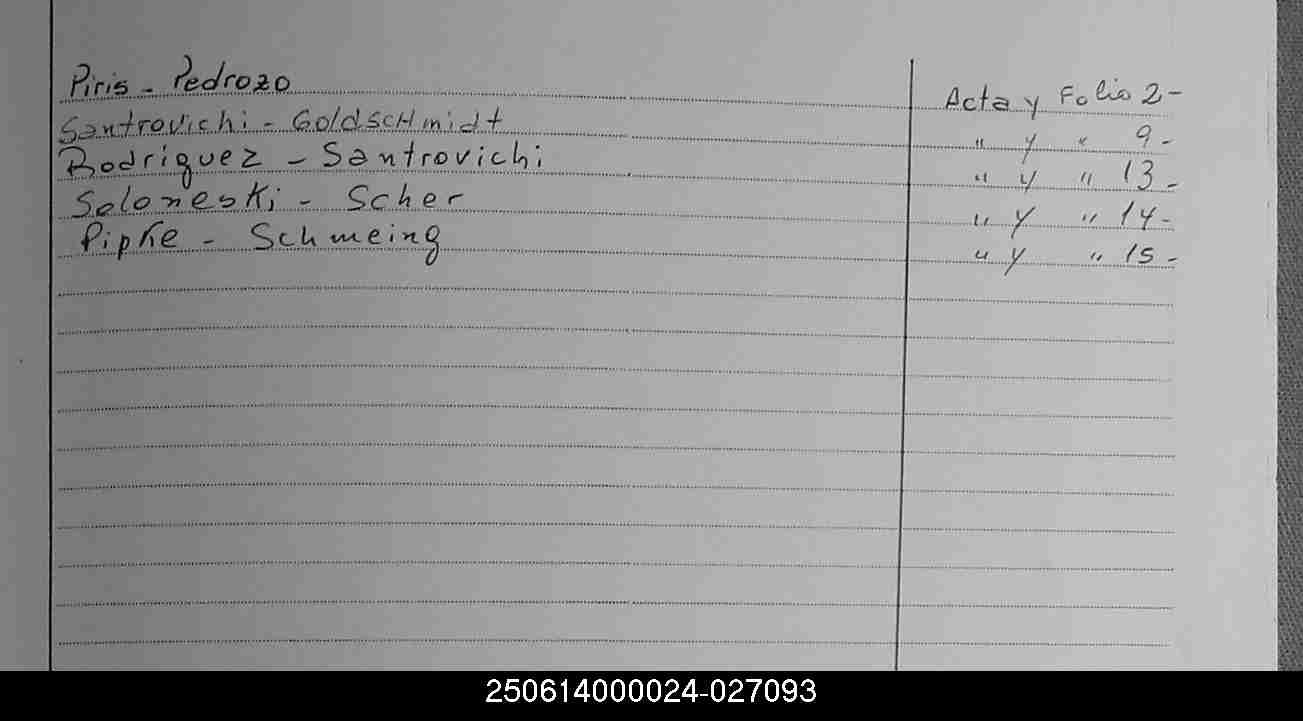 Piris - Pedrozo Acta y Folio 2-
Santrovichi - GoldscHmidt " y " 9-
Rodriguez - Santrovichi " y " 13-
Soloneski - Scher " y " 14-
Pipke - Schmeing " y " 15-
250614000024-027093